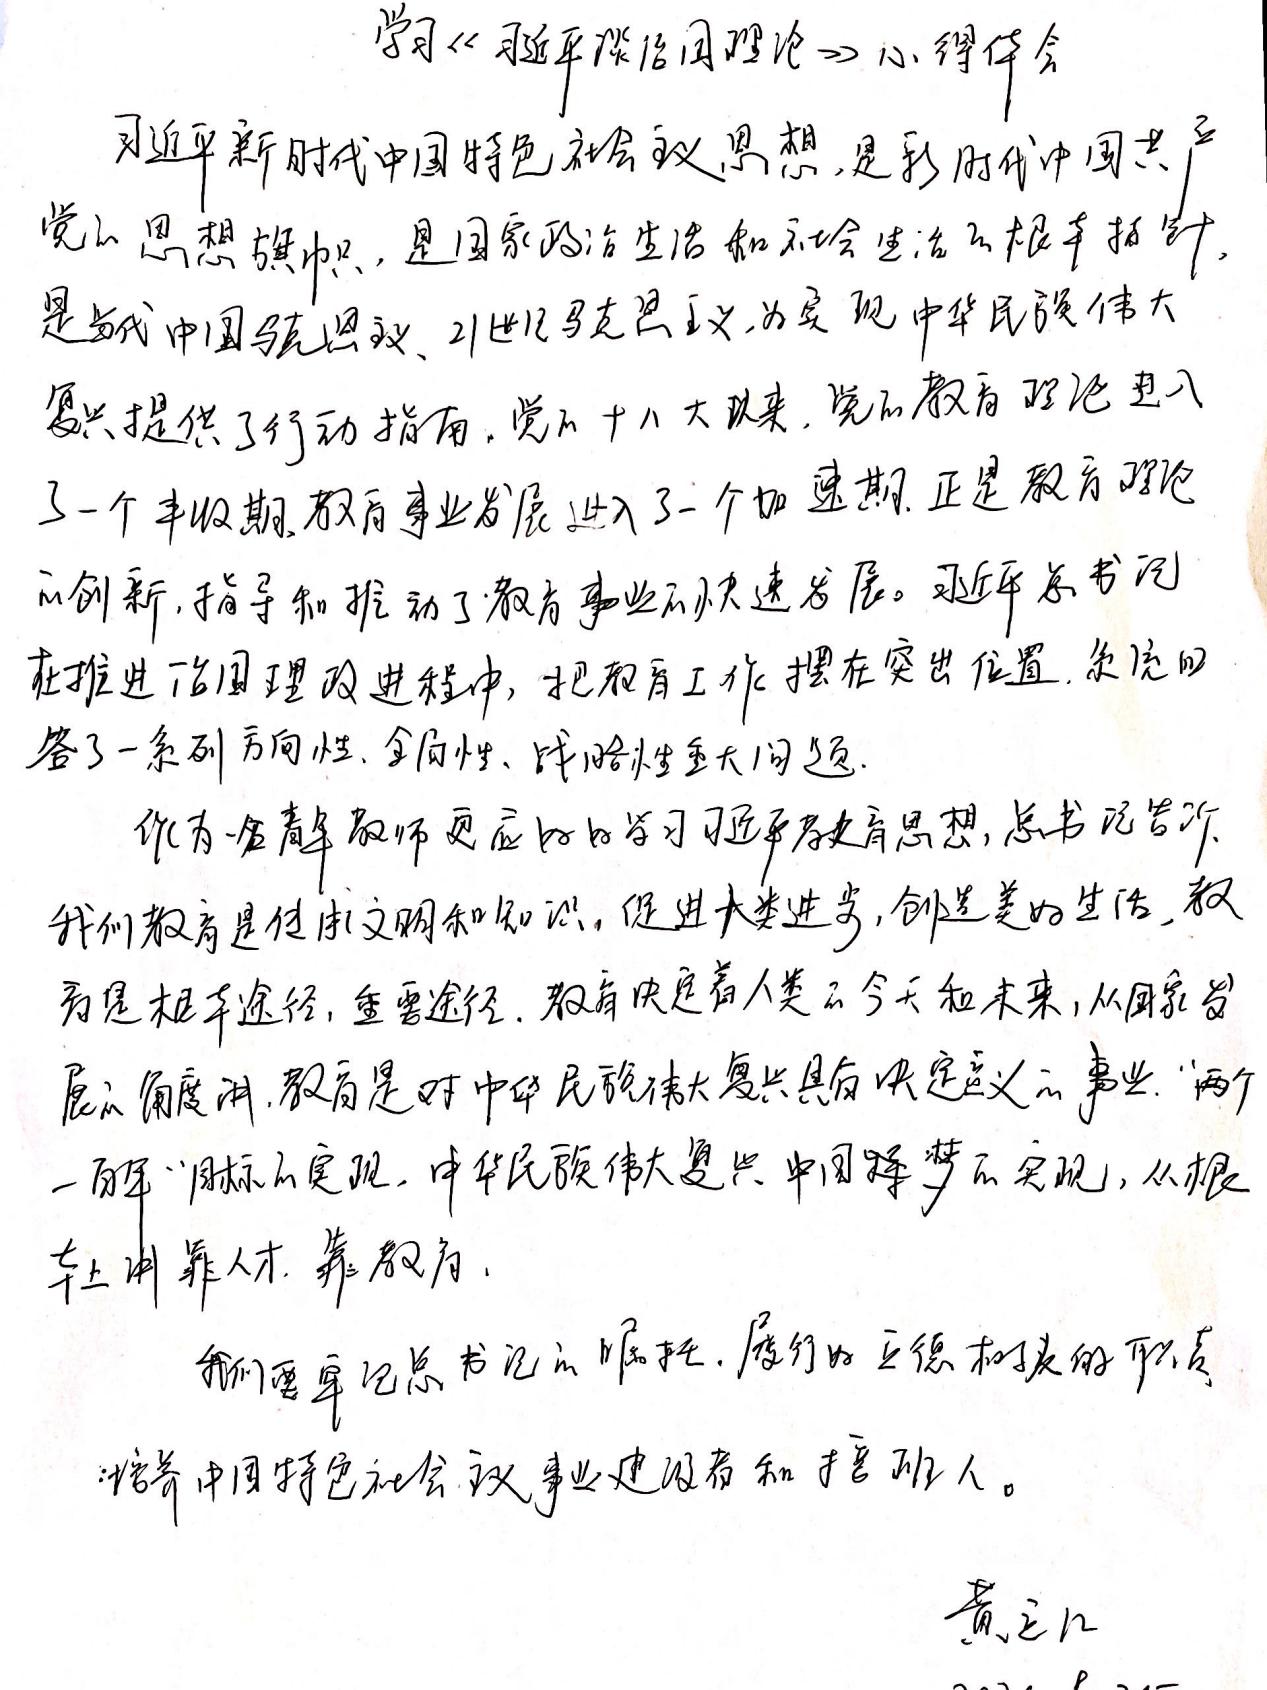 学习《习近平谈治国理论》心得体会
习近平新时代中国特色社会主义思想，是新时代中国共产
党的思想旗帜，是国家政治生活和社会生活的根本指针，
是当代中国马克思主义、21世纪马克思主义，为实现中华民族伟大
复兴提供了行动指南。党的十八大以来，党的教育理论进入
了一个丰收期、教育事业发展进入了一个加速期。正是教育理论
的创新，指导和推动了教育事业的快速发展。习近平总书记
在推进治国理政进程中，把教育工作摆在突出位置，系统回
答了一系列方向性、全局性、战略性重大问题。
作为一名青年教师更应好好学习习近平教育思想，总书记告诉
我们教育是传承文明和知识，促进人类进步，创造美好生活，教
育是根本途径，重要途径。教育决定着人类的今天和未来，从国家发
展的角度讲，教育是对中华民族伟大复兴具有决定意义的事业。“两个
一百年”目标的实现，中华民族伟大复兴中国梦的实现，从根
本上讲靠人才、靠教育。
我们要牢记总书记的嘱托，履行好立德树人的职责
培养中国特色社会主义事业建设者和接班人。